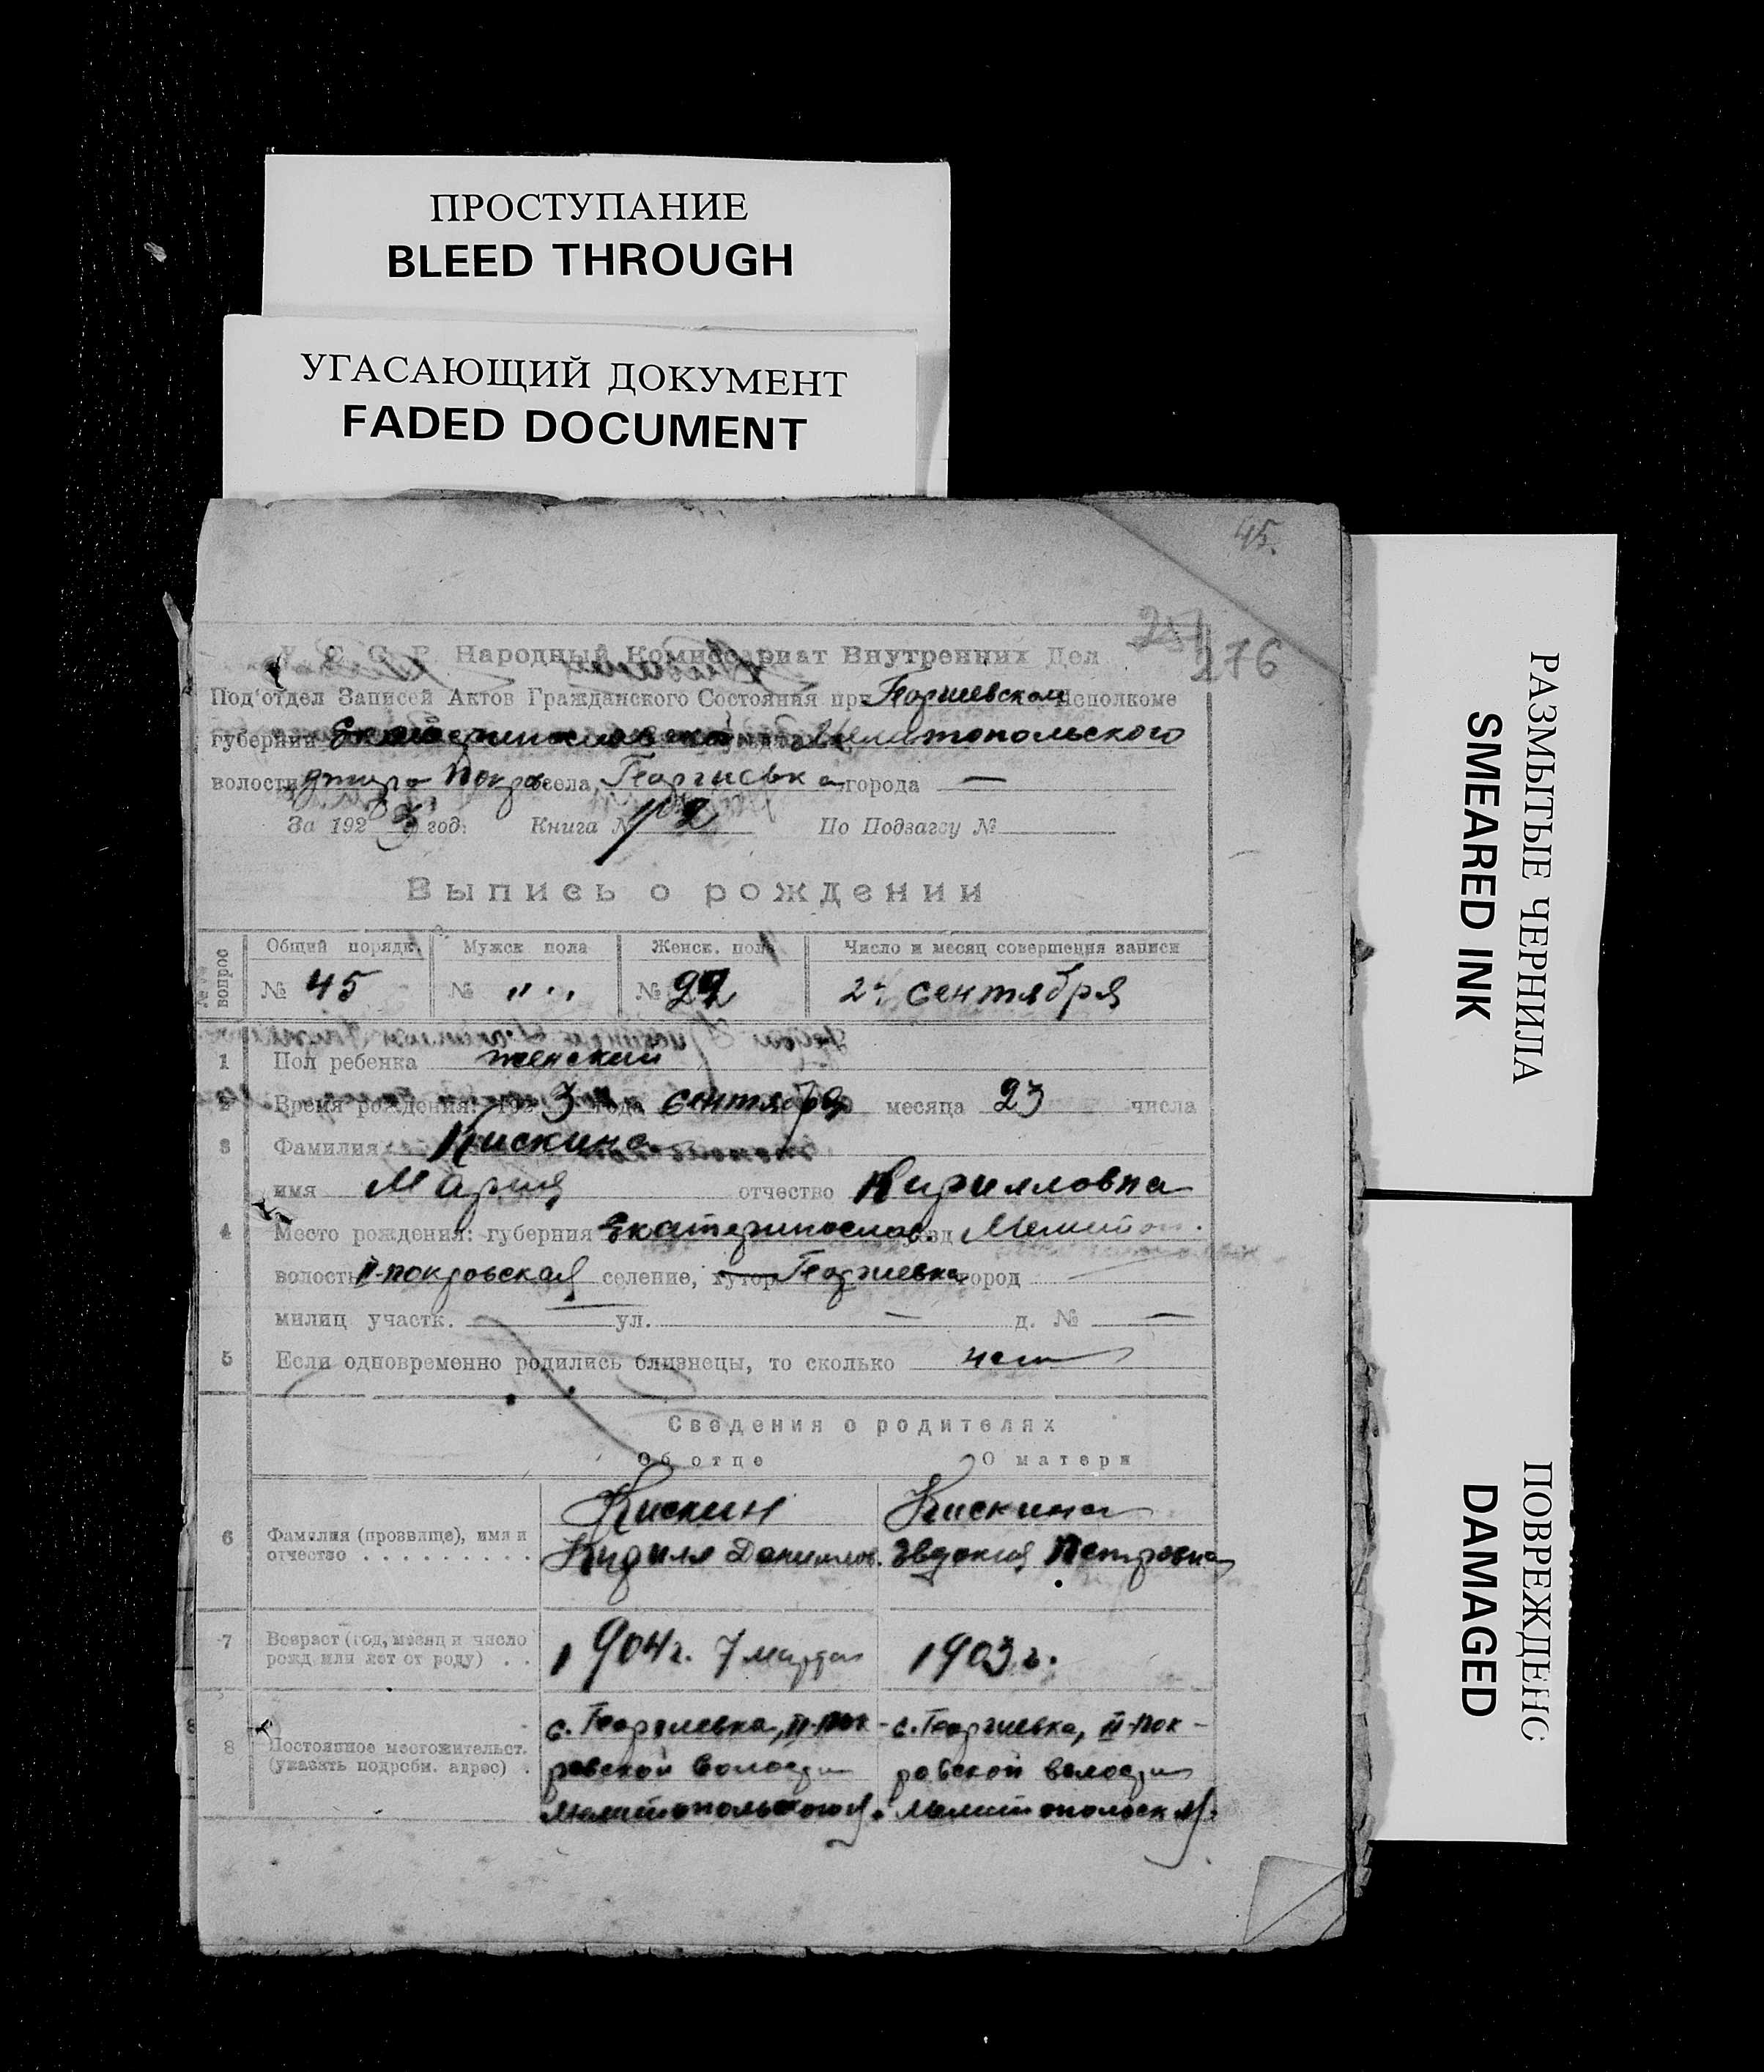 ПРОСТУПАНИЕ
BLEED THROUGH
УГАСАЮЩИЙ ДОКУМЕНТ
FADED DOCUMENT
45.
276
У. С. С. Р. Народный Комиссариат Внутренних Дел
Под'отдел Записей Актов Гражданского Состояния при Георгиевском Исполкоме
губернии Екатеринославской Мелитопольского
волости Покров села, Георгиевка города —
За 192 3 год. Книга № По Подзагсу №
Выпись о рождении
№№ вопрос
Общий порядк. Мужск пола Женск. пола Число и месяц совершения записи
№ 45 № " " № 22 сентября
1 Пол ребенка женский
2 Время рождения: 192 3 года сентября месяца 23 числа
3 Фамилия Кискина
имя Мария отчество Кирилловна
4 Место рождения: губерния Екатеринослав. уезд Мелитоп.
волость II-покровская селение, хутор Георгиевка город
милиц участк. — ул. — д. № —
5 Если одновременно родились близнецы, то сколько нет
Сведения о родителях
Об отце О матери
Кискин Кискина
6 Фамилия (прозвище), имя и отчество . . . . . . . . . Кирилл Данилов. Эвдокия Петровна
7 Возраст (год, месяц и число рожд или лет от роду) . . 1904г. 7 марта 1903 г.
с. Георгиевка, II-Пок- с. Георгиевка, II-Пок-
8 Постоянное местожительст. (указать подробн. адрес) . ровской волости ровской волости
Мелитопольского у. Мелитопольск у.
РАЗМЫТЫЕ ЧЕРНИЛА
SMEARED INK
ПОВРЕЖДЕНС
DAMAGED